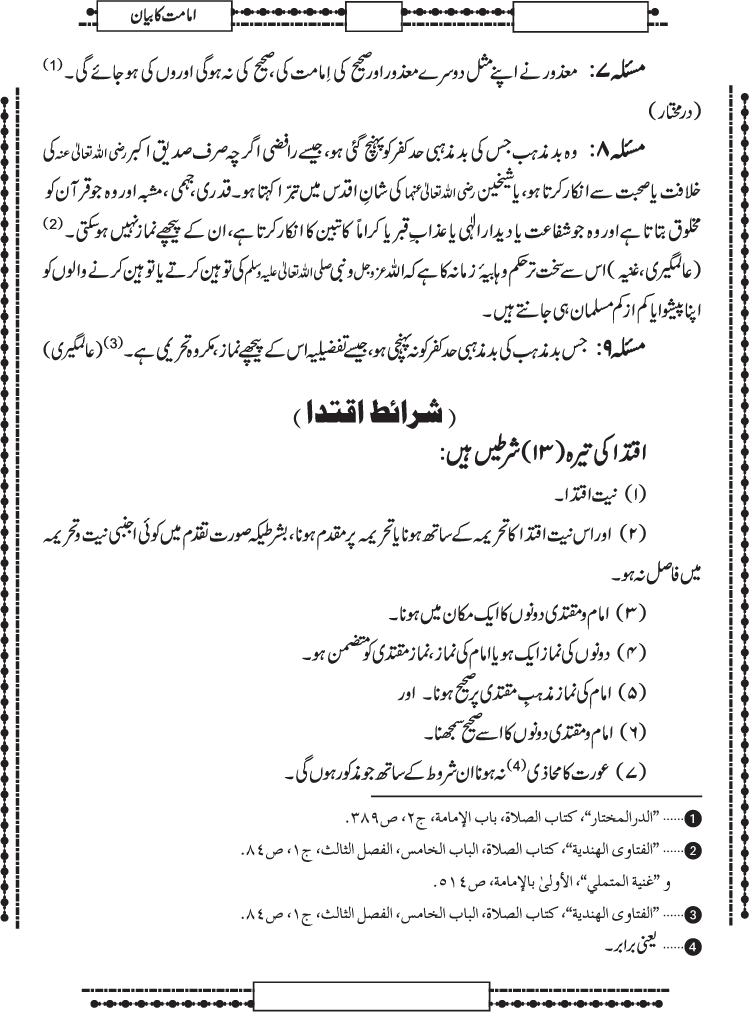 امامت کا بیان
مسئلہ ۷: معذور نے اپنے مثل دوسرے معذور اور صحیح کی اِمامت کی، صحیح کی نہ ہوگی اوروں کی ہو جائے گی۔ (1)
(درمختار)
مسئلہ ۸: وہ بد مذہب جس کی بد مذہبی حد کفر کو پہنچ گئی ہو، جیسے رافضی اگرچہ صرف صدیق اکبر رضی اللہ تعالیٰ عنہ کی
خلافت یا صحبت سے انکار کرتا ہو، یا شیخین رضی اللہ تعالیٰ عنہما کی شانِ اقدس میں تبرّا کہتا ہو۔ قدری، جہمی، مشبہ اور وہ جو قرآن کو
مخلوق بتاتا ہے اور وہ جو شفاعت یا دیدار الٰہی یا عذاب قبر یا کراماً کاتبین کا انکار کرتا ہے، ان کے پیچھے نماز نہیں ہو سکتی۔ (2)
(عالمگیری، غنیہ) اس سے سخت تر حکم وہابیۂ زمانہ کا ہے کہ اللہ عزوجل و نبی صلی اللہ تعالیٰ علیہ وسلم کی توہین کرتے یا توہین کرنے والوں کو
اپنا پیشوا یا کم از کم مسلمان ہی جانتے ہیں۔
مسئلہ ۹: جس بد مذہب کی بد مذہبی حد کفر کو نہ پہنچی ہو، جیسے تفضیلیہ اس کے پیچھے نماز، مکروہ تحریمی ہے۔ (3) (عالمگیری)
(شرائط اقتدا)
اقتدا کی تیرہ (۱۳) شرطیں ہیں:
(۱) نیت اقتدا۔
(۲) اور اس نیت اقتدا کا تحریمہ کے ساتھ ہونا یا تحریمہ پر مقدم ہونا، بشرطیکہ صورت تقدم میں کوئی اجنبی نیت و تحریمہ
میں فاصل نہ ہو۔
(۳) امام و مقتدی دونوں کا ایک مکان میں ہونا۔
(۴) دونوں کی نماز ایک ہو یا امام کی نماز، نماز مقتدی کو متضمن ہو۔
(۵) امام کی نماز مذہبِ مقتدی پر صحیح ہونا۔ اور
(۶) امام و مقتدی دونوں کا اسے صحیح سمجھنا۔
(۷) عورت کا محاذی (4) نہ ہونا ان شروط کے ساتھ جو مذکور ہوں گی۔
1 ...... "الدرالمختار"، كتاب الصلاة، باب الإمامة، ج۲، ص۳۸۹.
2 ...... "الفتاوى الهندية"، كتاب الصلاة، الباب الخامس، الفصل الثالث، ج۱، ص۸٤.
و "غنية المتملي"، الأولىٰ بالإمامة، ص٥١٤.
3 ...... "الفتاوى الهندية"، كتاب الصلاة، الباب الخامس، الفصل الثالث، ج۱، ص۸٤.
4 ...... یعنی برابر۔